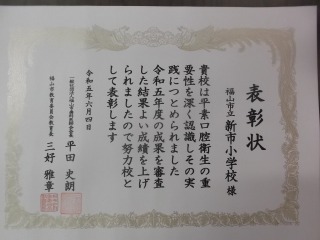 表彰状
福山市立 新市小学校 様
貴校は平素口腔衛生の重
要性を深く認識しその実
践につとめられました
令和五年度の成果を審査
した結果よい成績を上げ
られましたので努力校と
して表彰します
令和五年六月四日
平田 史朗
福山市教育委員会教育長 三好 雅章